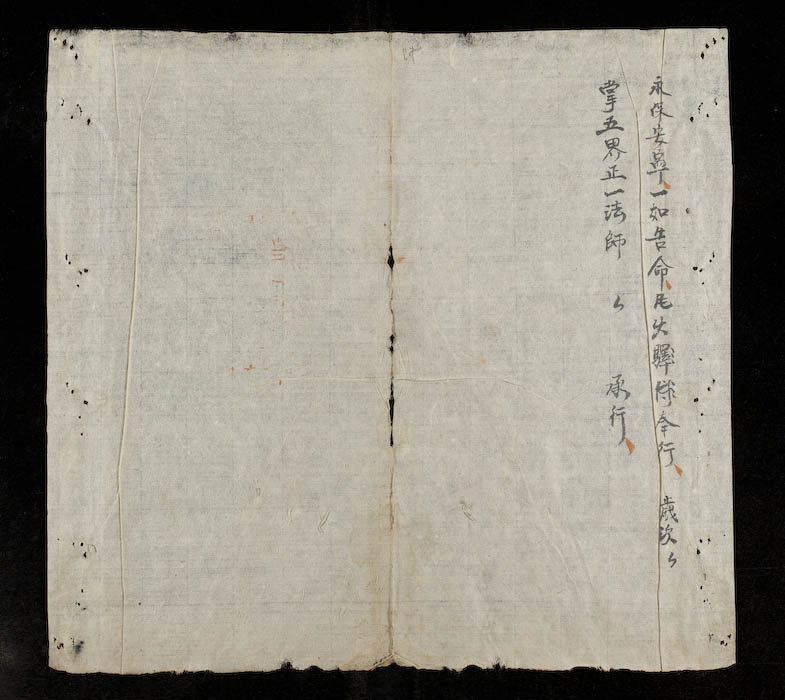 永保安寧一如告命風火驛傳奉行 歲次厶
掌五界正一法師 厶 承行